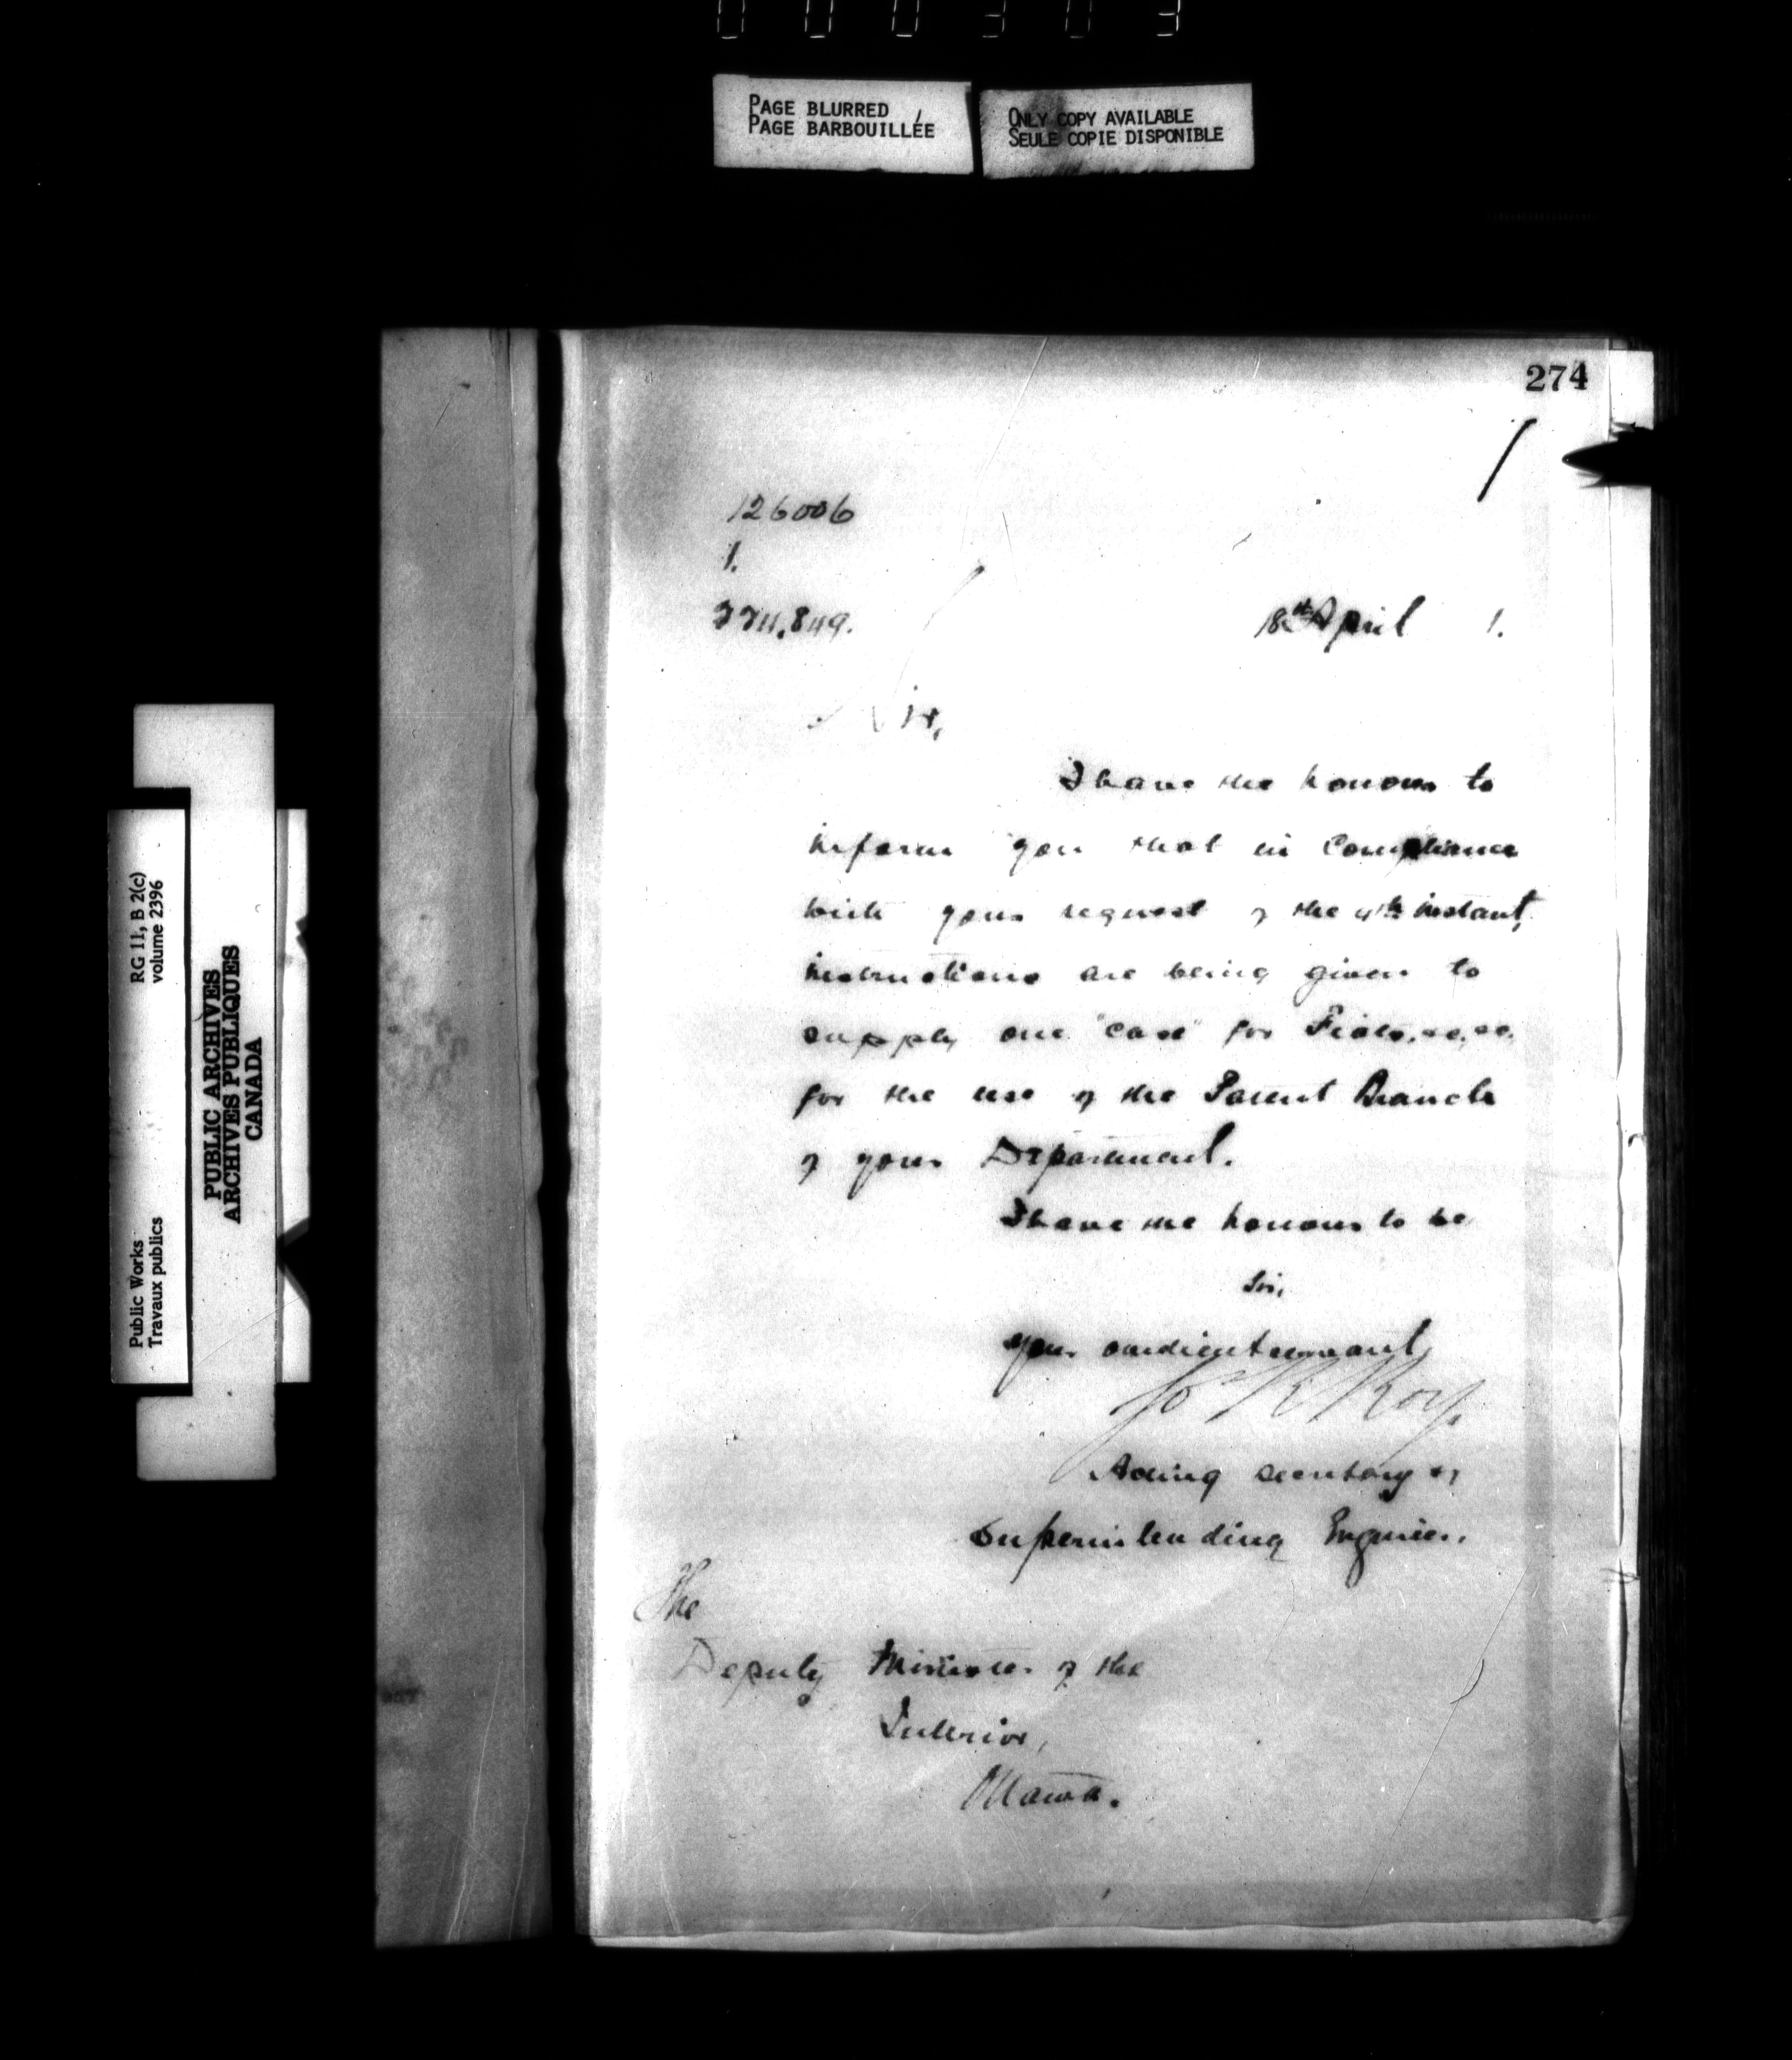 000303
PAGE BLURRED
PAGE BARBOUILLÉE
ONLY COPY AVAILABLE
SEULE COPIE DISPONIBLE
274
126006
1.
18th April 1.
Sir,
I have the honour to
inform you that in compliance
with your request of the 4th instant,
instructions are being given to
supply one "case" for &c, &c.
for the use of the Patent Branch
of your Department.
I have the honour to be
Sir,
your obedient servant,
Jos R Roy.
Acting Secretary &
Superintending Engineer.
The
Deputy Minister of the
Interior,
Ottawa.
Public Works
Travaux publics
RG 11, B 2(c)
volume 2396
PUBLIC ARCHIVES
ARCHIVES PUBLIQUES
CANADA